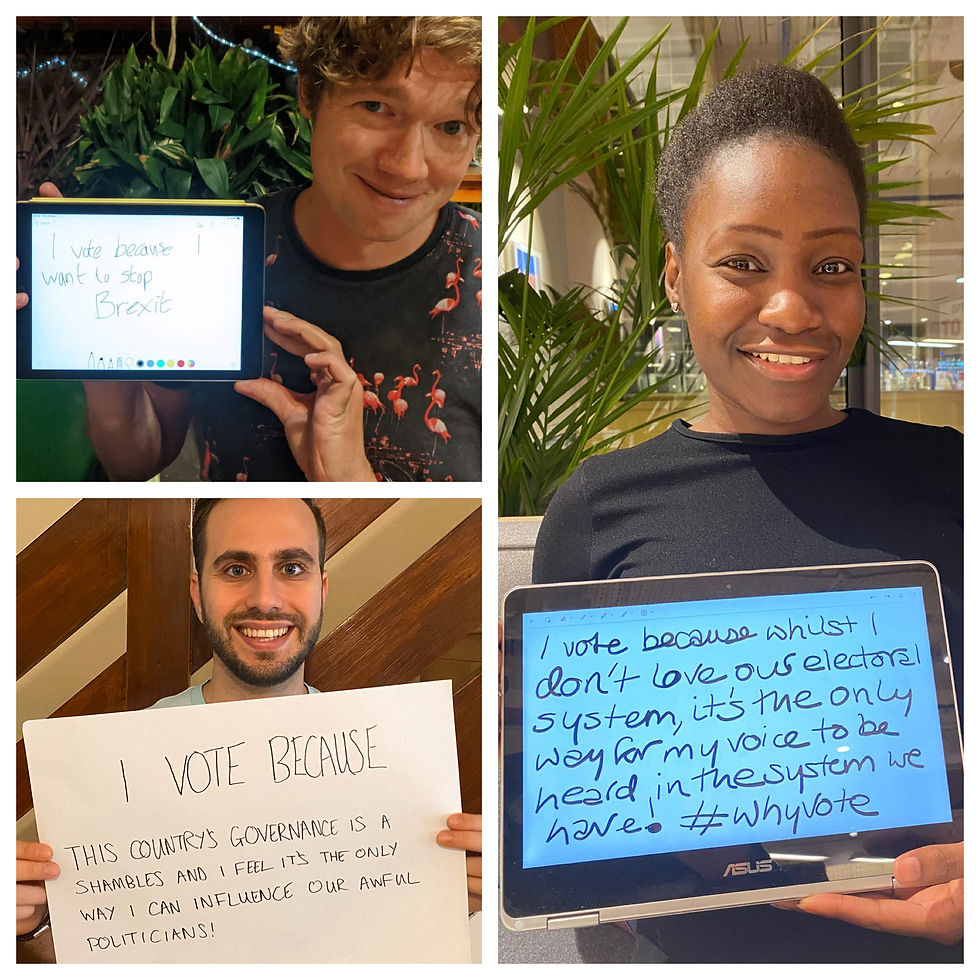 I vote because I
want to stop
Brexit
I VOTE BECAUSE
THIS COUNTRY'S GOVERNANCE IS A
SHAMBLES AND I FEEL IT'S THE ONLY
WAY I CAN INFLUENCE OUR AWFUL
POLITICIANS!
I vote because whilst I
don't love our electoral
system, it's the only
way for my voice to be
heard in the system we
have! #whyvote
ASUS